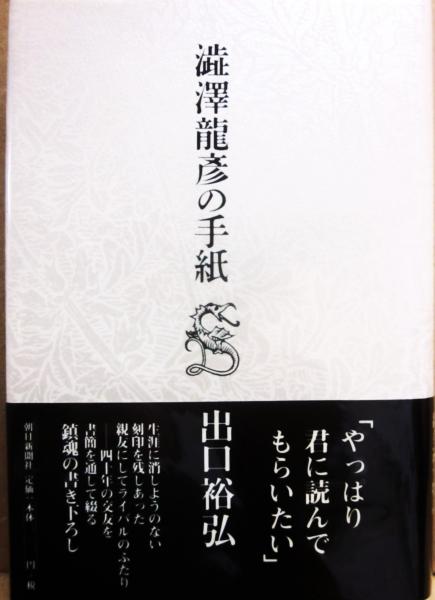 澁澤龍彥の手紙
出口裕弘
「やっぱり
君に読んで
もらいたい」
生涯に消しようのない
刻印を残しあった
親友にしてライバルのふたり
──四十年の交友を
書簡を通して綴る
鎮魂の書き下ろし
朝日新聞社 定価 本体 円 税